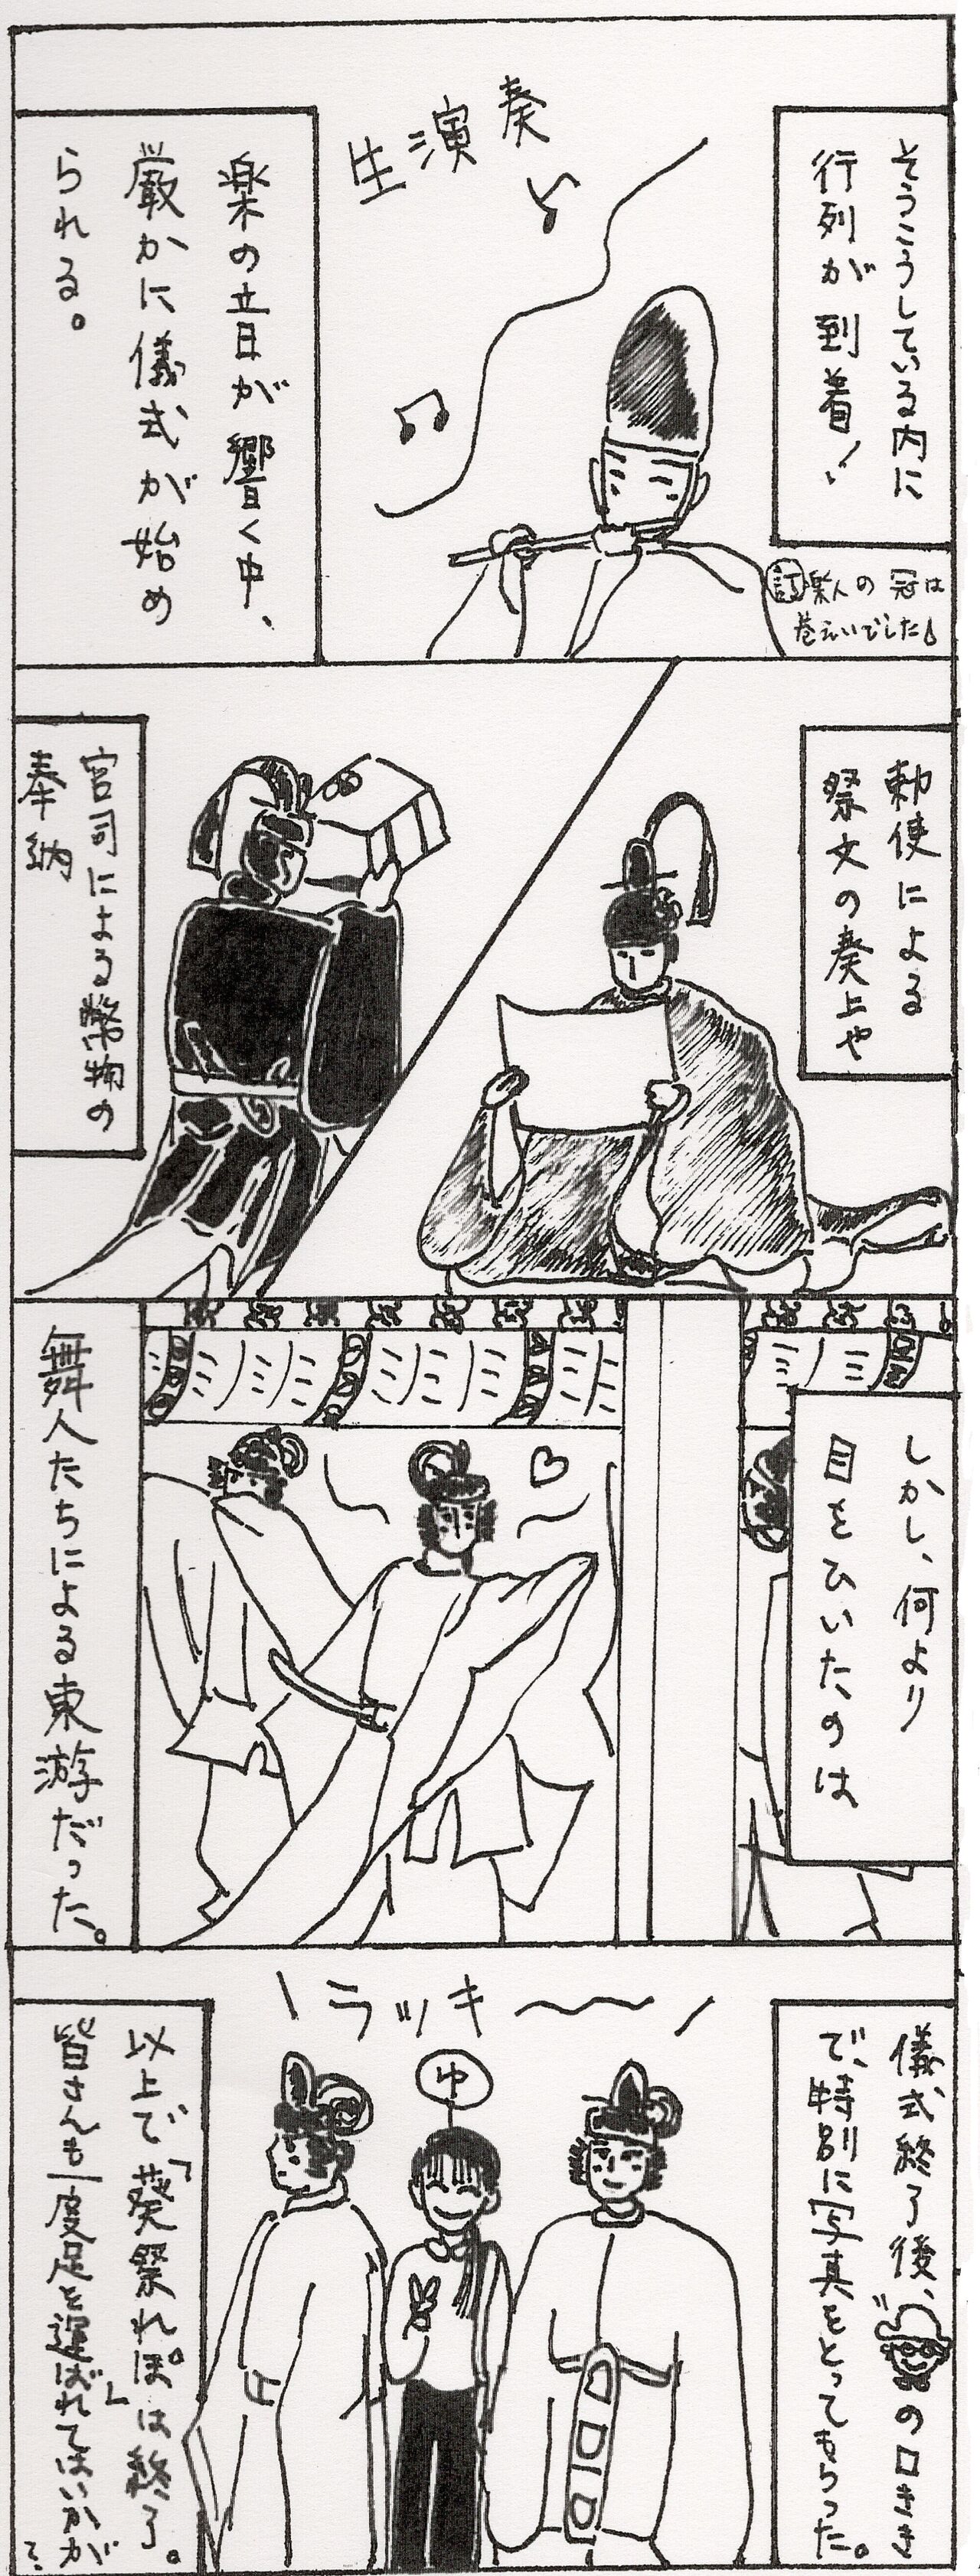 そうこうしている内に
行列が到着!
生演奏
訂 楽人の冠は
巻えいでした
楽の音が響く中、
厳かに儀式が始め
られる。
勅使による
祭文の奏上や
宮司による幣物の
奉納
しかし、何より
目をひいたのは
舞人たちによる東游だった。
儀式終了後、
の口きき
で、特別に写真をとってもらった。
ラッキ〜〜
ゆ
以上で「葵祭れぽ。」は終了。
皆さんも一度足を運ばれてはいかが
?